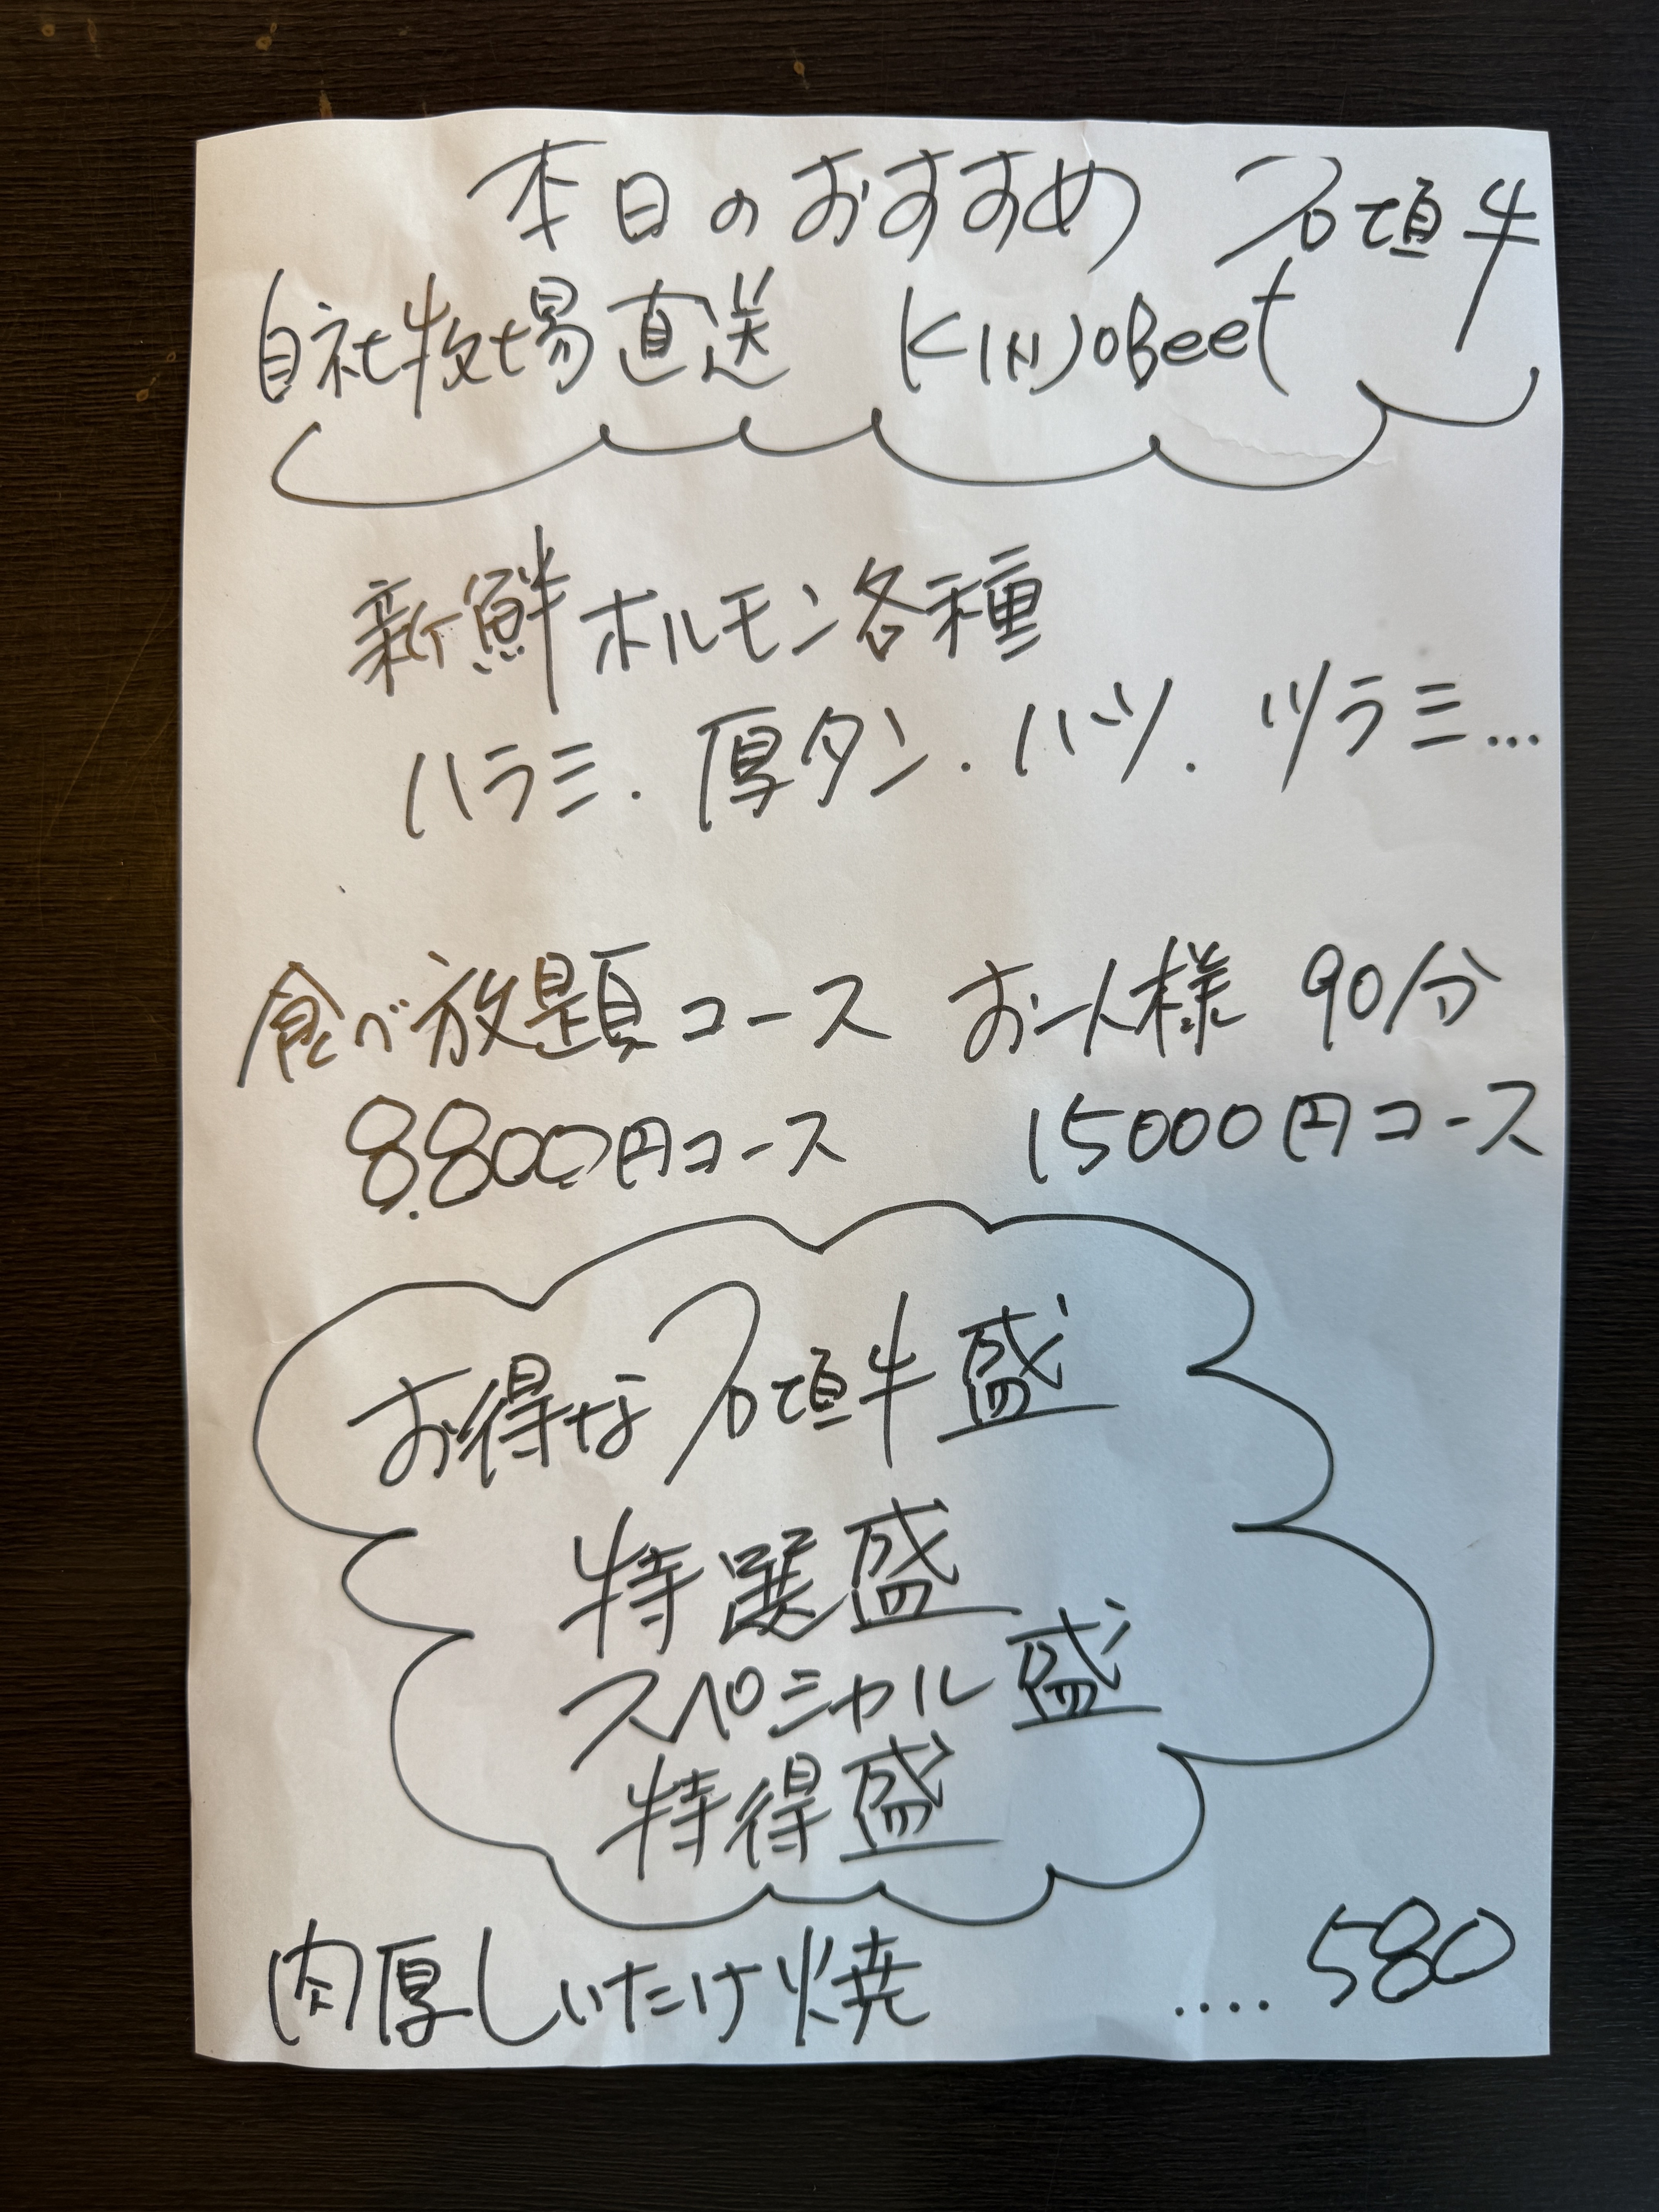 本日のおすすめ 石垣牛
自社牧場直送 KINJOBeef
新鮮ホルモン各種
ハラミ. 厚タン. ハツ. ツラミ...
食べ放題コース お一人様 90分
8.800円コース 15000円コース
お得な石垣牛盛
特選盛
スペシャル盛
特得盛
肉厚しいたけ焼 .... 580